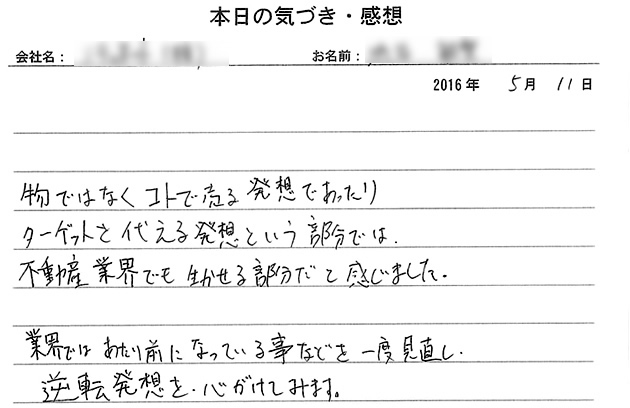 本日の気づき・感想
会社名：
お名前：
2016年 5月 11日
物ではなくコトで売る発想であったり
ターゲットを代える発想という部分では、
不動産業界でも生かせる部分だと感じました。
業界ではあたり前になっている事などを一度見直し、
逆転発想を心がけてみます。